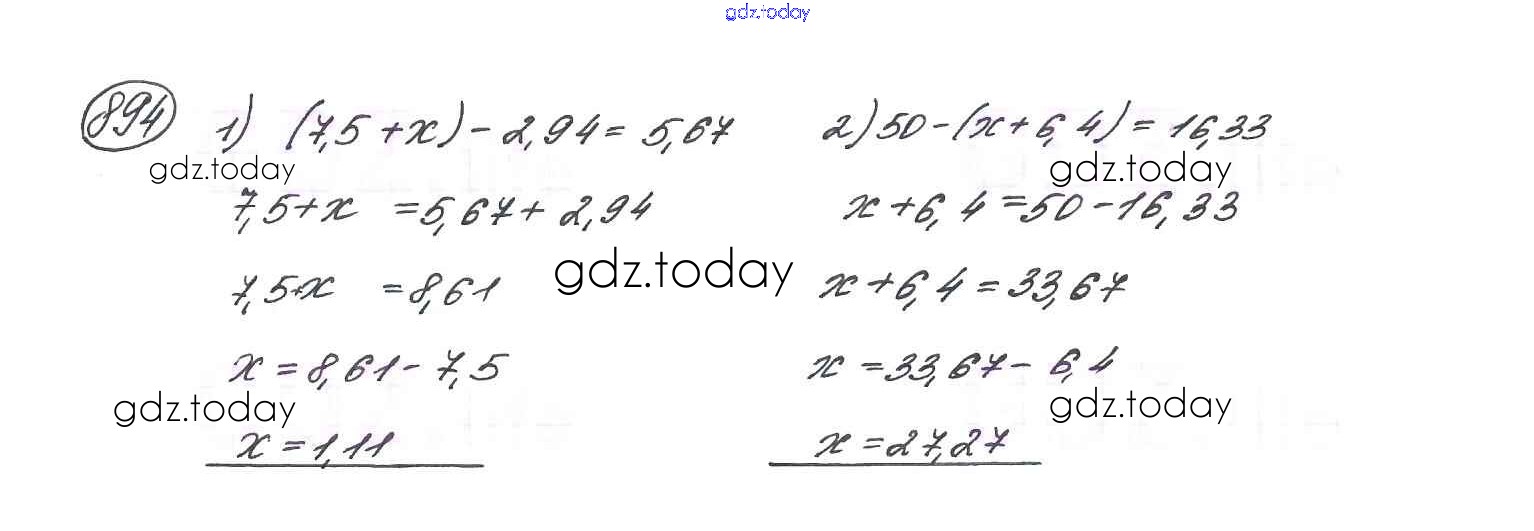 gdz.today
894 1) (7,5+x)-2,94=5,67 2) 50-(x+6,4)=16,33
gdz.today gdz.today
7,5+x =5,67+2,94 x+6,4=50-16,33
gdz.today
7,5+x =8,61 x+6,4=33,67
x=8,61-7,5 x=33,67-6,4
gdz.today gdz.today
x=1,11 x=27,27